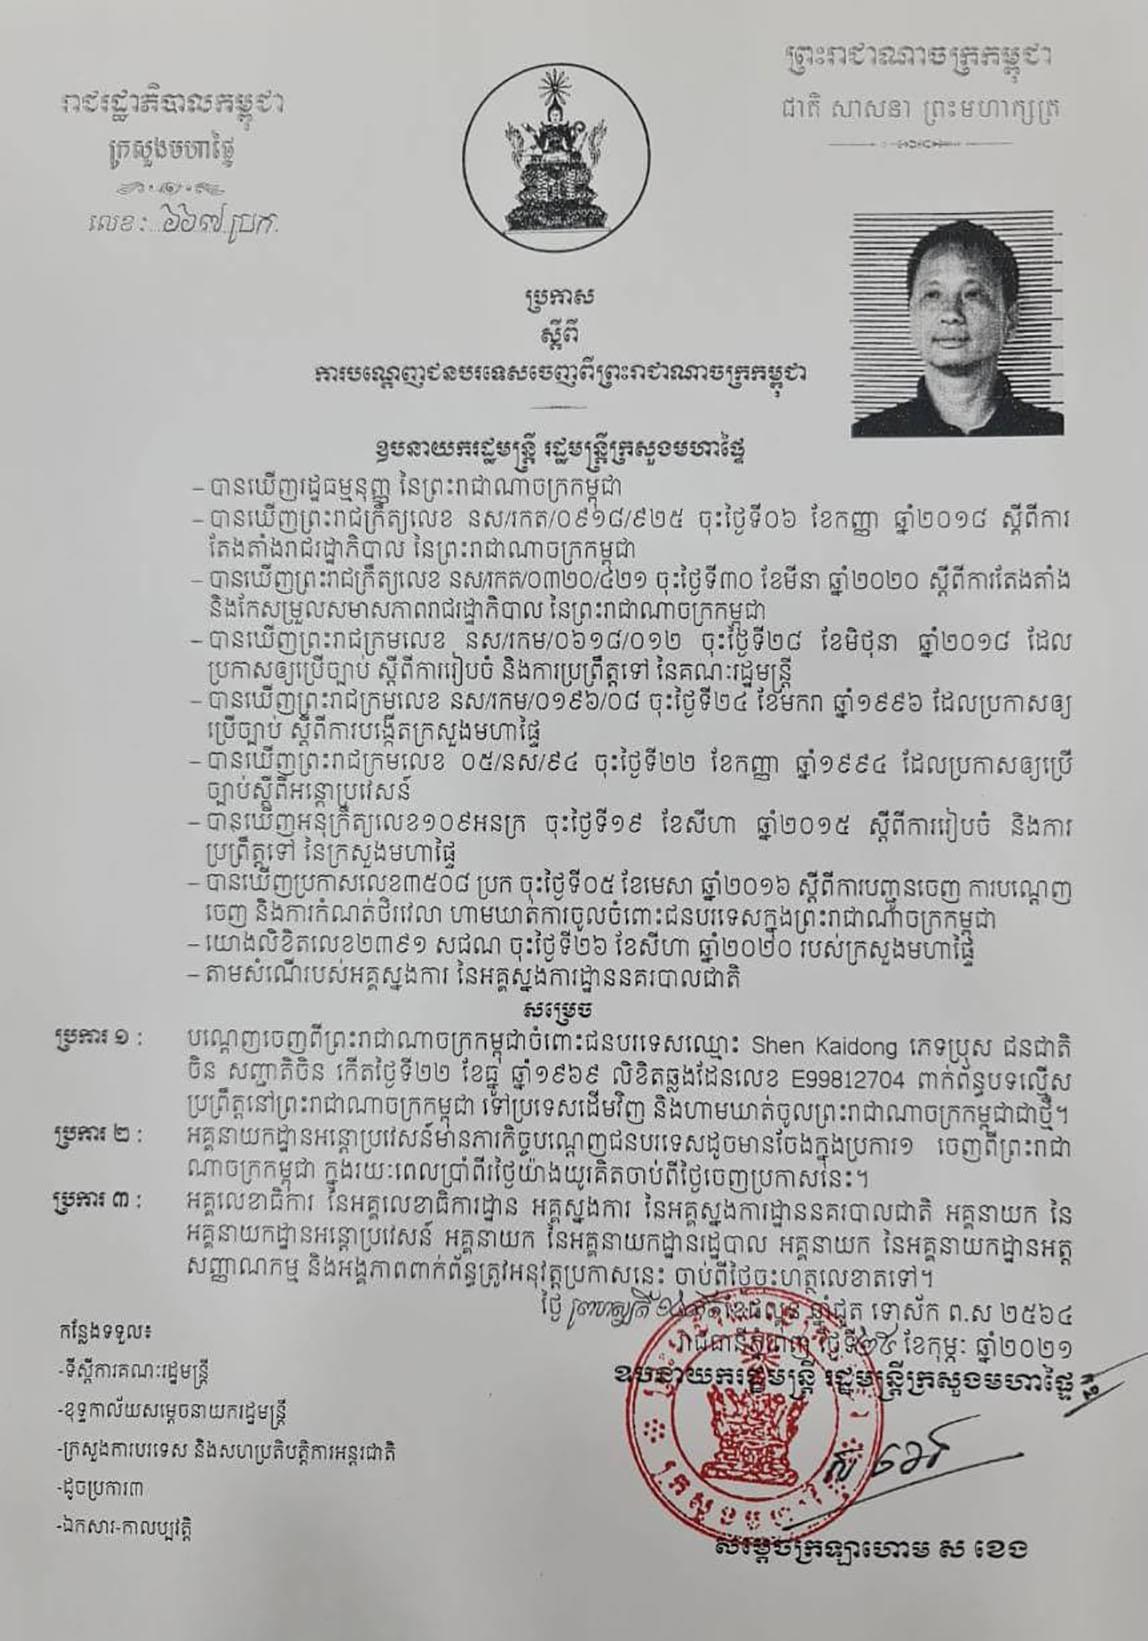 ព្រះរាជាណាចក្រកម្ពុជា
ជាតិ សាសនា ព្រះមហាក្សត្រ
រាជរដ្ឋាភិបាលកម្ពុជា
ក្រសួងមហាផ្ទៃ
លេខ: ៦៦៧ ប្រក.
ប្រកាស
ស្តីពី
ការបណ្តេញជនបរទេសចេញពីព្រះរាជាណាចក្រកម្ពុជា
ឧបនាយករដ្ឋមន្ត្រី រដ្ឋមន្ត្រីក្រសួងមហាផ្ទៃ
– បានឃើញរដ្ឋធម្មនុញ្ញ នៃព្រះរាជាណាចក្រកម្ពុជា
– បានឃើញព្រះរាជក្រឹត្យលេខ នស/រកត/០៩១៨/៩២៥ ចុះថ្ងៃទី០៦ ខែកញ្ញា ឆ្នាំ២០១៨ ស្តីពីការ
តែងតាំងរាជរដ្ឋាភិបាល នៃព្រះរាជាណាចក្រកម្ពុជា
– បានឃើញព្រះរាជក្រឹត្យលេខ នស/រកត/០៣២០/៤២១ ចុះថ្ងៃទី៣០ ខែមីនា ឆ្នាំ២០២០ ស្តីពីការតែងតាំង
និងកែសម្រួលសមាសភាពរាជរដ្ឋាភិបាល នៃព្រះរាជាណាចក្រកម្ពុជា
– បានឃើញព្រះរាជក្រមលេខ នស/រកម/០៦១៨/០១២ ចុះថ្ងៃទី២៨ ខែមិថុនា ឆ្នាំ២០១៨ ដែល
ប្រកាសឲ្យប្រើច្បាប់ ស្តីពីការរៀបចំ និងការប្រព្រឹត្តទៅ នៃគណៈរដ្ឋមន្ត្រី
– បានឃើញព្រះរាជក្រមលេខ នស/រកម/០១៩៦/០៨ ចុះថ្ងៃទី២៤ ខែមករា ឆ្នាំ១៩៩៦ ដែលប្រកាសឲ្យ
ប្រើច្បាប់ ស្តីពីការបង្កើតក្រសួងមហាផ្ទៃ
– បានឃើញព្រះរាជក្រមលេខ ០៥/នស/៩៤ ចុះថ្ងៃទី២២ ខែកញ្ញា ឆ្នាំ១៩៩៤ ដែលប្រកាសឲ្យប្រើ
ច្បាប់ស្តីពីអន្តោប្រវេសន៍
– បានឃើញអនុក្រឹត្យលេខ១០៩អនក្រ ចុះថ្ងៃទី១៩ ខែសីហា ឆ្នាំ២០១៥ ស្តីពីការរៀបចំ និងការ
ប្រព្រឹត្តទៅ នៃក្រសួងមហាផ្ទៃ
– បានឃើញប្រកាសលេខ៣៥០៨ ប្រក ចុះថ្ងៃទី០៥ ខែមេសា ឆ្នាំ២០១៦ ស្តីពីការបញ្ជូនចេញ ការបណ្តេញ
ចេញ និងការកំណត់ថិរវេលា ហាមឃាត់ការចូលចំពោះជនបរទេសក្នុងព្រះរាជាណាចក្រកម្ពុជា
– យោងលិខិតលេខ២៣៩១ សជណ ចុះថ្ងៃទី២៦ ខែសីហា ឆ្នាំ២០២០ របស់ក្រសួងមហាផ្ទៃ
– តាមសំណើរបស់អគ្គស្នងការ នៃអគ្គស្នងការដ្ឋាននគរបាលជាតិ
សម្រេច
ប្រការ ១ : បណ្តេញចេញពីព្រះរាជាណាចក្រកម្ពុជាចំពោះជនបរទេសឈ្មោះ Shen Kaidong ភេទប្រុស ជនជាតិ
ចិន សញ្ជាតិចិន កើតថ្ងៃទី២២ ខែធ្នូ ឆ្នាំ១៩៦៩ លិខិតឆ្លងដែនលេខ E99812704 ពាក់ព័ន្ធបទល្មើស
ប្រព្រឹត្តនៅព្រះរាជាណាចក្រកម្ពុជា ទៅប្រទេសដើមវិញ និងហាមឃាត់ចូលព្រះរាជាណាចក្រកម្ពុជាជាថ្មី។
ប្រការ ២ : អគ្គនាយកដ្ឋានអន្តោប្រវេសន៍មានភារកិច្ចបណ្តេញជនបរទេសដូចមានចែងក្នុងប្រការ១ ចេញពីព្រះរាជា
ណាចក្រកម្ពុជា ក្នុងរយៈពេលប្រាំពីរថ្ងៃយ៉ាងយូរគិតចាប់ពីថ្ងៃចេញប្រកាសនេះ។
ប្រការ ៣ : អគ្គលេខាធិការ នៃអគ្គលេខាធិការដ្ឋាន អគ្គស្នងការ នៃអគ្គស្នងការដ្ឋាននគរបាលជាតិ អគ្គនាយក នៃ
អគ្គនាយកដ្ឋានអន្តោប្រវេសន៍ អគ្គនាយក នៃអគ្គនាយកដ្ឋានរដ្ឋបាល អគ្គនាយក នៃអគ្គនាយកដ្ឋានអត្ត
សញ្ញាណកម្ម និងអង្គភាពពាក់ព័ន្ធត្រូវអនុវត្តប្រកាសនេះ ចាប់ពីថ្ងៃចុះហត្ថលេខាតទៅ។
ថ្ងៃ ព្រហស្បតិ៍ ខែផល្គុន ឆ្នាំជូត ទោស័ក ព.ស ២៥៦៤
រាជធានីភ្នំពេញ ថ្ងៃទី ខែកុម្ភៈ ឆ្នាំ២០២១
ឧបនាយករដ្ឋមន្ត្រី រដ្ឋមន្ត្រីក្រសួងមហាផ្ទៃ
ក្រសួងមហាផ្ទៃ
សម្តេចក្រឡាហោម ស ខេង
កន្លែងទទួល៖
-ទីស្តីការគណៈរដ្ឋមន្ត្រី
-ខុទ្ទកាល័យសម្តេចនាយករដ្ឋមន្ត្រី
-ក្រសួងការបរទេស និងសហប្រតិបត្តិការអន្តរជាតិ
-ដូចប្រការ៣
-ឯកសារ-កាលប្បវត្តិ